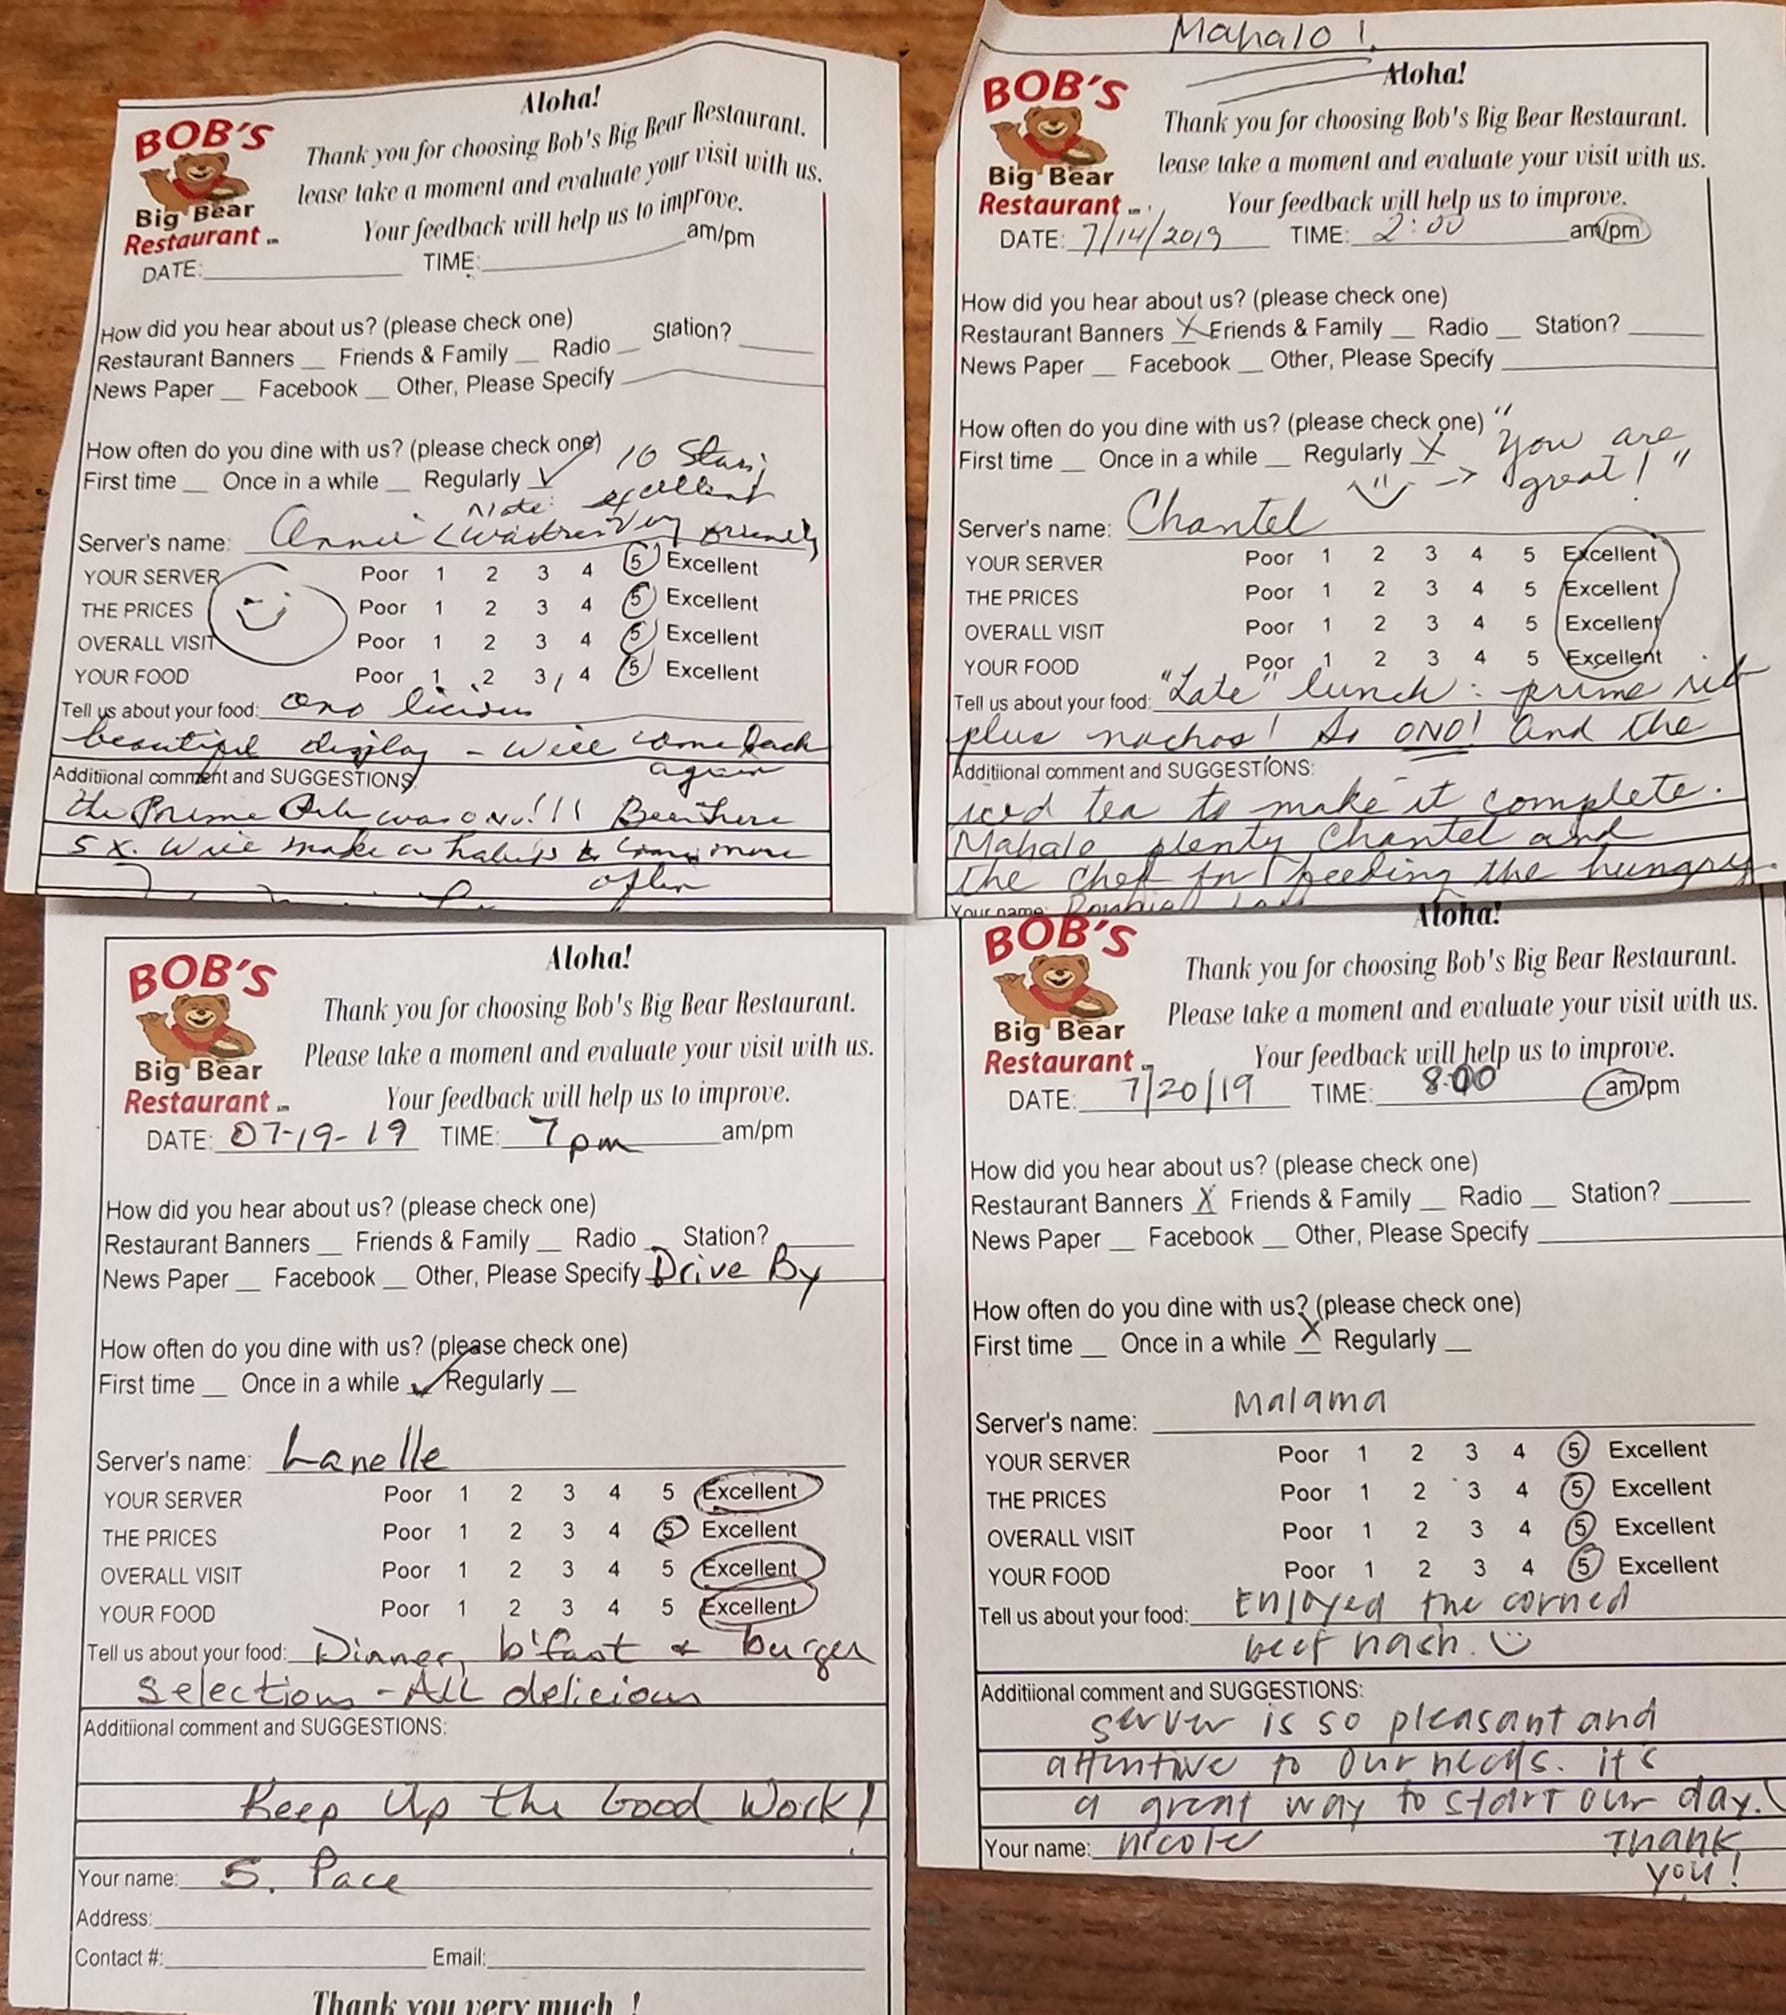 Aloha!
BOB'S
Big Bear
Restaurant
Thank you for choosing Bob's Big Bear Restaurant.
lease take a moment and evaluate your visit with us.
Your feedback will help us to improve.
DATE: TIME: am/pm
How did you hear about us? (please check one)
Restaurant Banners __ Friends & Family __ Radio __ Station? ____
News Paper __ Facebook __ Other, Please Specify
How often do you dine with us? (please check one)
10 Stars
First time __ Once in a while __ Regularly ✓
excellent
Note:
Server's name: Annie (Waitress Very friendly
YOUR SERVER Poor 1 2 3 4 5 Excellent
THE PRICES Poor 1 2 3 4 5 Excellent
OVERALL VISIT Poor 1 2 3 4 5 Excellent
YOUR FOOD Poor 1 2 3 4 5 Excellent
Tell us about your food: ono licious
beautiful display - will come back
again
Additiional comment and SUGGESTIONS:
the Prime Rib was ONO!!! Been here
5 x. Will make a habit to come more
often
Mahalo!
Aloha!
BOB'S
Big Bear
Restaurant
Thank you for choosing Bob's Big Bear Restaurant.
lease take a moment and evaluate your visit with us.
Your feedback will help us to improve.
DATE: 7/14/2019 TIME: 2:00 am/pm
How did you hear about us? (please check one)
Restaurant Banners X Friends & Family __ Radio __ Station? ____
News Paper __ Facebook __ Other, Please Specify
How often do you dine with us? (please check one)
First time __ Once in a while __ Regularly X
"You are
great!"
Server's name: Chantel
YOUR SERVER Poor 1 2 3 4 5 Excellent
THE PRICES Poor 1 2 3 4 5 Excellent
OVERALL VISIT Poor 1 2 3 4 5 Excellent
YOUR FOOD Poor 1 2 3 4 5 Excellent
Tell us about your food: "Late" lunch: prime rib
plus nachos! So ONO! And the
Additiional comment and SUGGESTIONS:
iced tea to make it complete.
Mahalo plenty Chantel and
the chef for feeding the hungry.
Your name:
Aloha!
BOB'S
Big Bear
Restaurant
Thank you for choosing Bob's Big Bear Restaurant.
Please take a moment and evaluate your visit with us.
Your feedback will help us to improve.
DATE: 07-19-19 TIME: 7pm am/pm
How did you hear about us? (please check one)
Restaurant Banners __ Friends & Family __ Radio __ Station? ____
News Paper __ Facebook __ Other, Please Specify Drive By
How often do you dine with us? (please check one)
First time __ Once in a while ✓ Regularly __
Server's name: Lanelle
YOUR SERVER Poor 1 2 3 4 5 Excellent
THE PRICES Poor 1 2 3 4 5 Excellent
OVERALL VISIT Poor 1 2 3 4 5 Excellent
YOUR FOOD Poor 1 2 3 4 5 Excellent
Tell us about your food: Dinner, b'fast & burger
selections - ALL delicious
Additiional comment and SUGGESTIONS:
Keep Up the Good Work!
Your name: S. Pace
Address:
Contact #: Email:
Thank you very much !
Aloha!
BOB'S
Big Bear
Restaurant
Thank you for choosing Bob's Big Bear Restaurant.
Please take a moment and evaluate your visit with us.
Your feedback will help us to improve.
DATE: 7/20/19 TIME: 8:00 am/pm
How did you hear about us? (please check one)
Restaurant Banners X Friends & Family __ Radio __ Station? ____
News Paper __ Facebook __ Other, Please Specify
How often do you dine with us? (please check one)
First time __ Once in a while X Regularly __
Server's name: Malama
YOUR SERVER Poor 1 2 3 4 5 Excellent
THE PRICES Poor 1 2 3 4 5 Excellent
OVERALL VISIT Poor 1 2 3 4 5 Excellent
YOUR FOOD Poor 1 2 3 4 5 Excellent
Tell us about your food: Enjoyed the corned
beef hash.
Additiional comment and SUGGESTIONS:
server is so pleasant and
attentive to our needs. it's
a great way to start our day.
Your name: nicole
Thank
you!